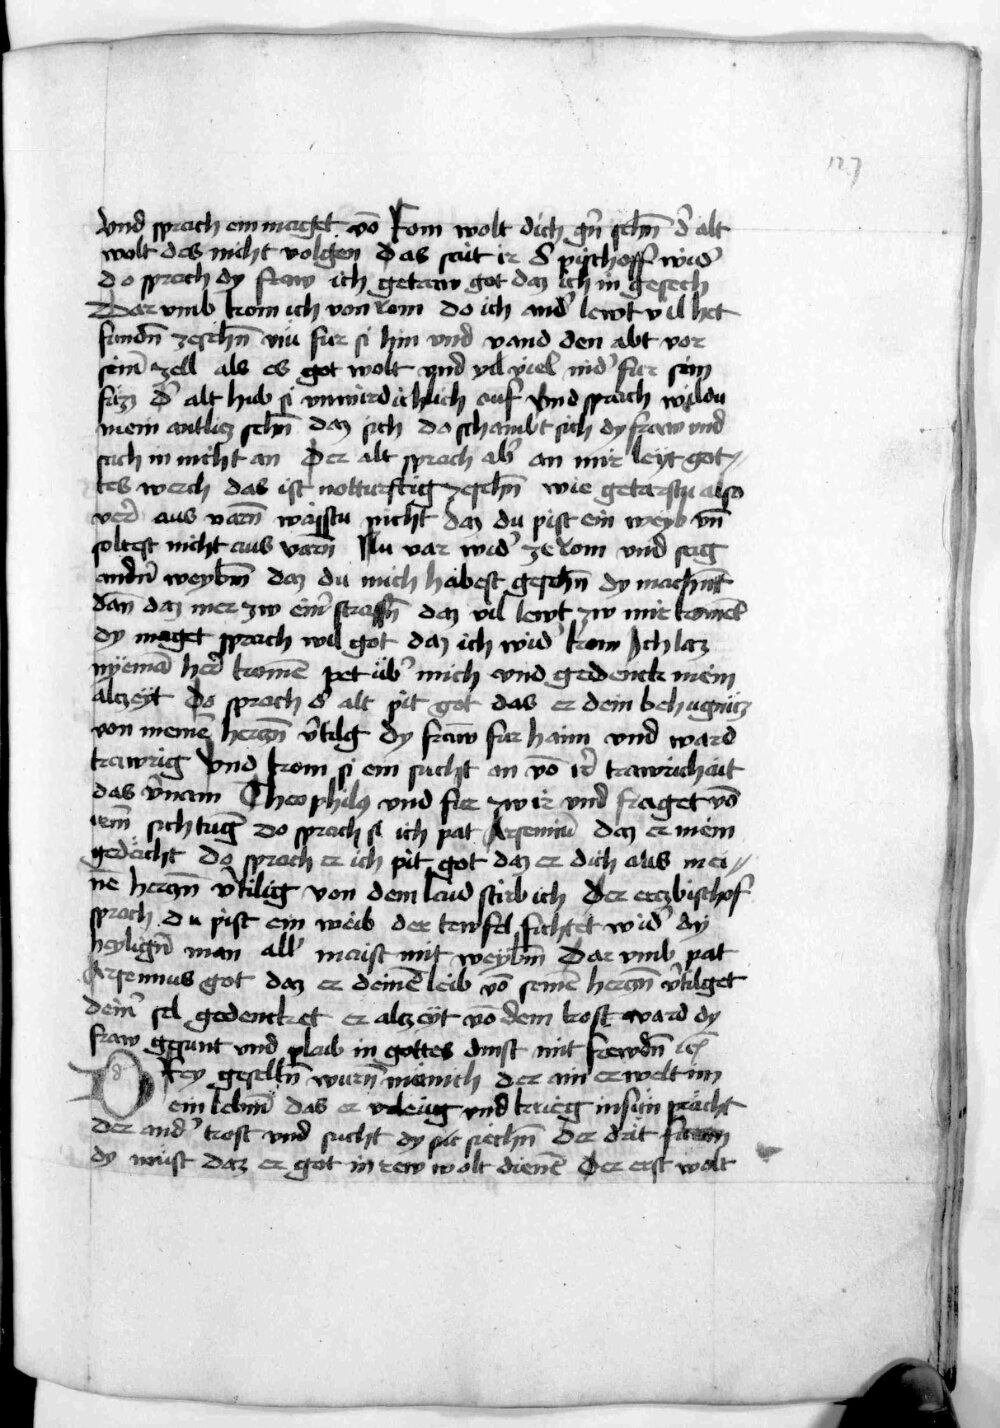 127
vnd sprach ein maget vō Rom wolt dich gˀn sehn̄ dˀ alt
wolt des nicht volgen Das sait ir dˀ pischoff widˀ
do sprach dy fraw ich getraw got daz ich in gesech
Dar vmb kom ich von rom do ich andˀ lewt vil het
fundn̄ zesehn̄ fur si hin vnd vand den abt vor
seinˀ zell als es got wolt vnd vil nidˀ fur sein
füzz Dˀ alt hub si vnwirdichlich auf vnd sprach wildu
mein antlicz sehn̄ daz sich do schambt sich dy fraw vnd
sach in nicht an Der alt sprach abˀ an mir leyt got⸗
tes werch das ist notturftig zesehn̄ wie getarstu also
verˀ aus varn̄ waistu nicht daz du pist ein weyb vn̄
soltest nicht aus varn̄ Nu var widˀ ze rom vnd sag
andn̄ weybn̄ daz du mich habest gesehn̄ dy machent
dan daz mer zw einˀ strassn̄ daz vil lewt zw mir komēt
dy maget sprach wil got daz ich widˀ kom Ich laz
nyemā herˀ komē pet übˀ mich vnd gedenck mein
alczeyt Do sprach dˀ alt pit got das er dein behugnüz
von meinē herczn̄ vˀtilg dy fraw fur haim vnd ward
trawrig Vnd kom si ein sucht an vō irˀ trawrichait
das vˀnam Theophilꝯ vnd fur zw ir vnd fraget vō
irm̄ sichtūg Do sprach si ich pat Arseniū daz er mein
gedacht Do sprach er ich pit got daz er dich aus mei⸗
nē herczn̄ vˀtilig von dem laid stirb ich Der erczbischof
sprach du pist ein weib der tewfel fichtet widˀ dy
heylign̄ man allˀ maist mit weybn̄ Dar vmb pat
Arsenius got daz er deinē leib vō seinē herczn̄ vˀtilget
deinˀ sel gedencket er alczeyt vō dem trost ward dy
fraw gesunt vnd plaib in gottes dinst mit frewdn̄
Drey geselln̄ wurn̄ münich der ain erwelt im
ein lebm̄ das er vrleüg vnd krieg in sün prācht
der andˀ trost vnd sucht dy siechn̄ der drit
dy wüst daz er got in rew wolt dienē Der erst wolt